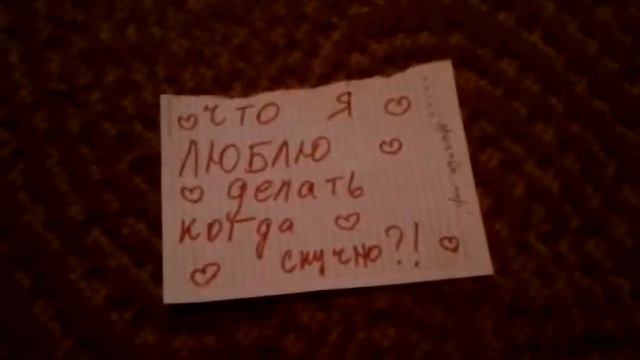 ЧТО Я
ЛЮБЛЮ
делать
когда
скучно?!